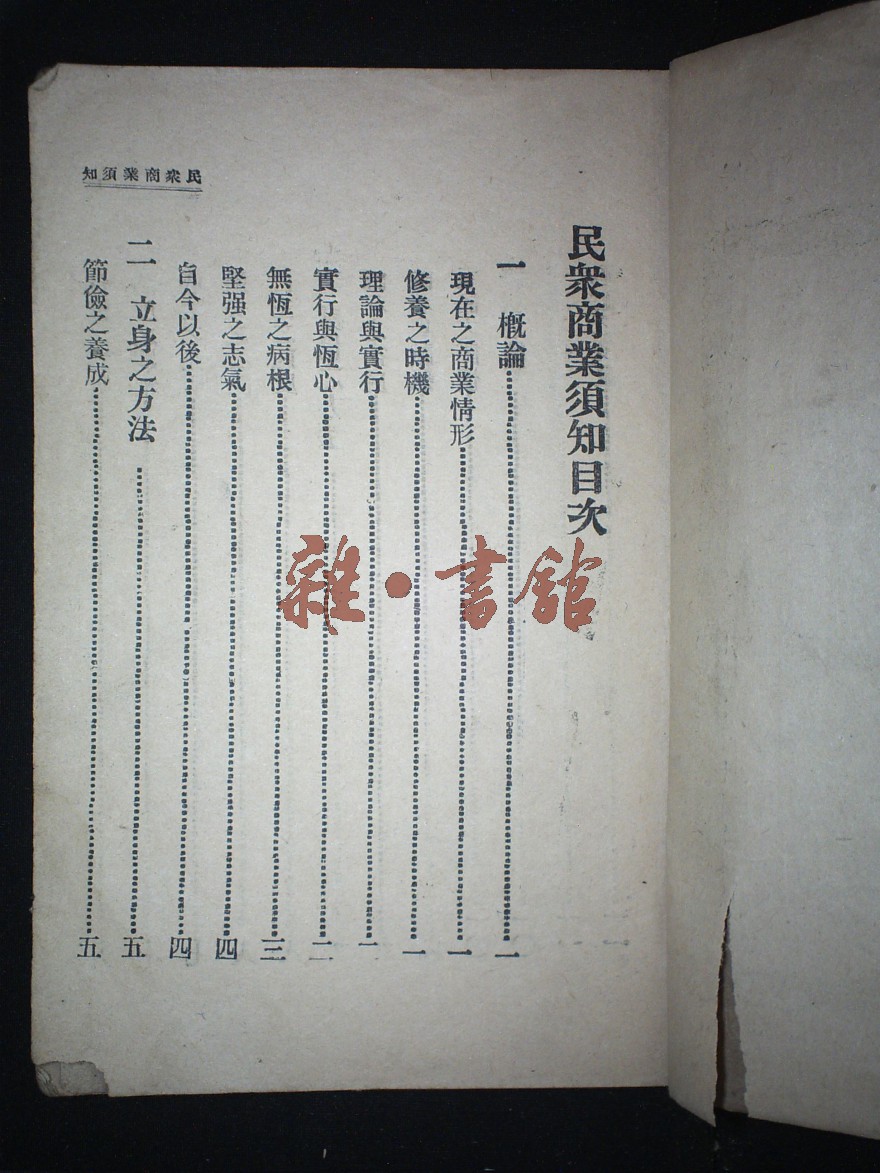 民衆商業須知
民衆商業須知目次
一 概論……一
現在之商業情形……一
修養之時機……一
理論與實行……二
實行與恆心……二
無恆之病根……三
堅强之志氣……四
自今以後……四
二 立身之方法……五
節儉之養成……五
雜·書館